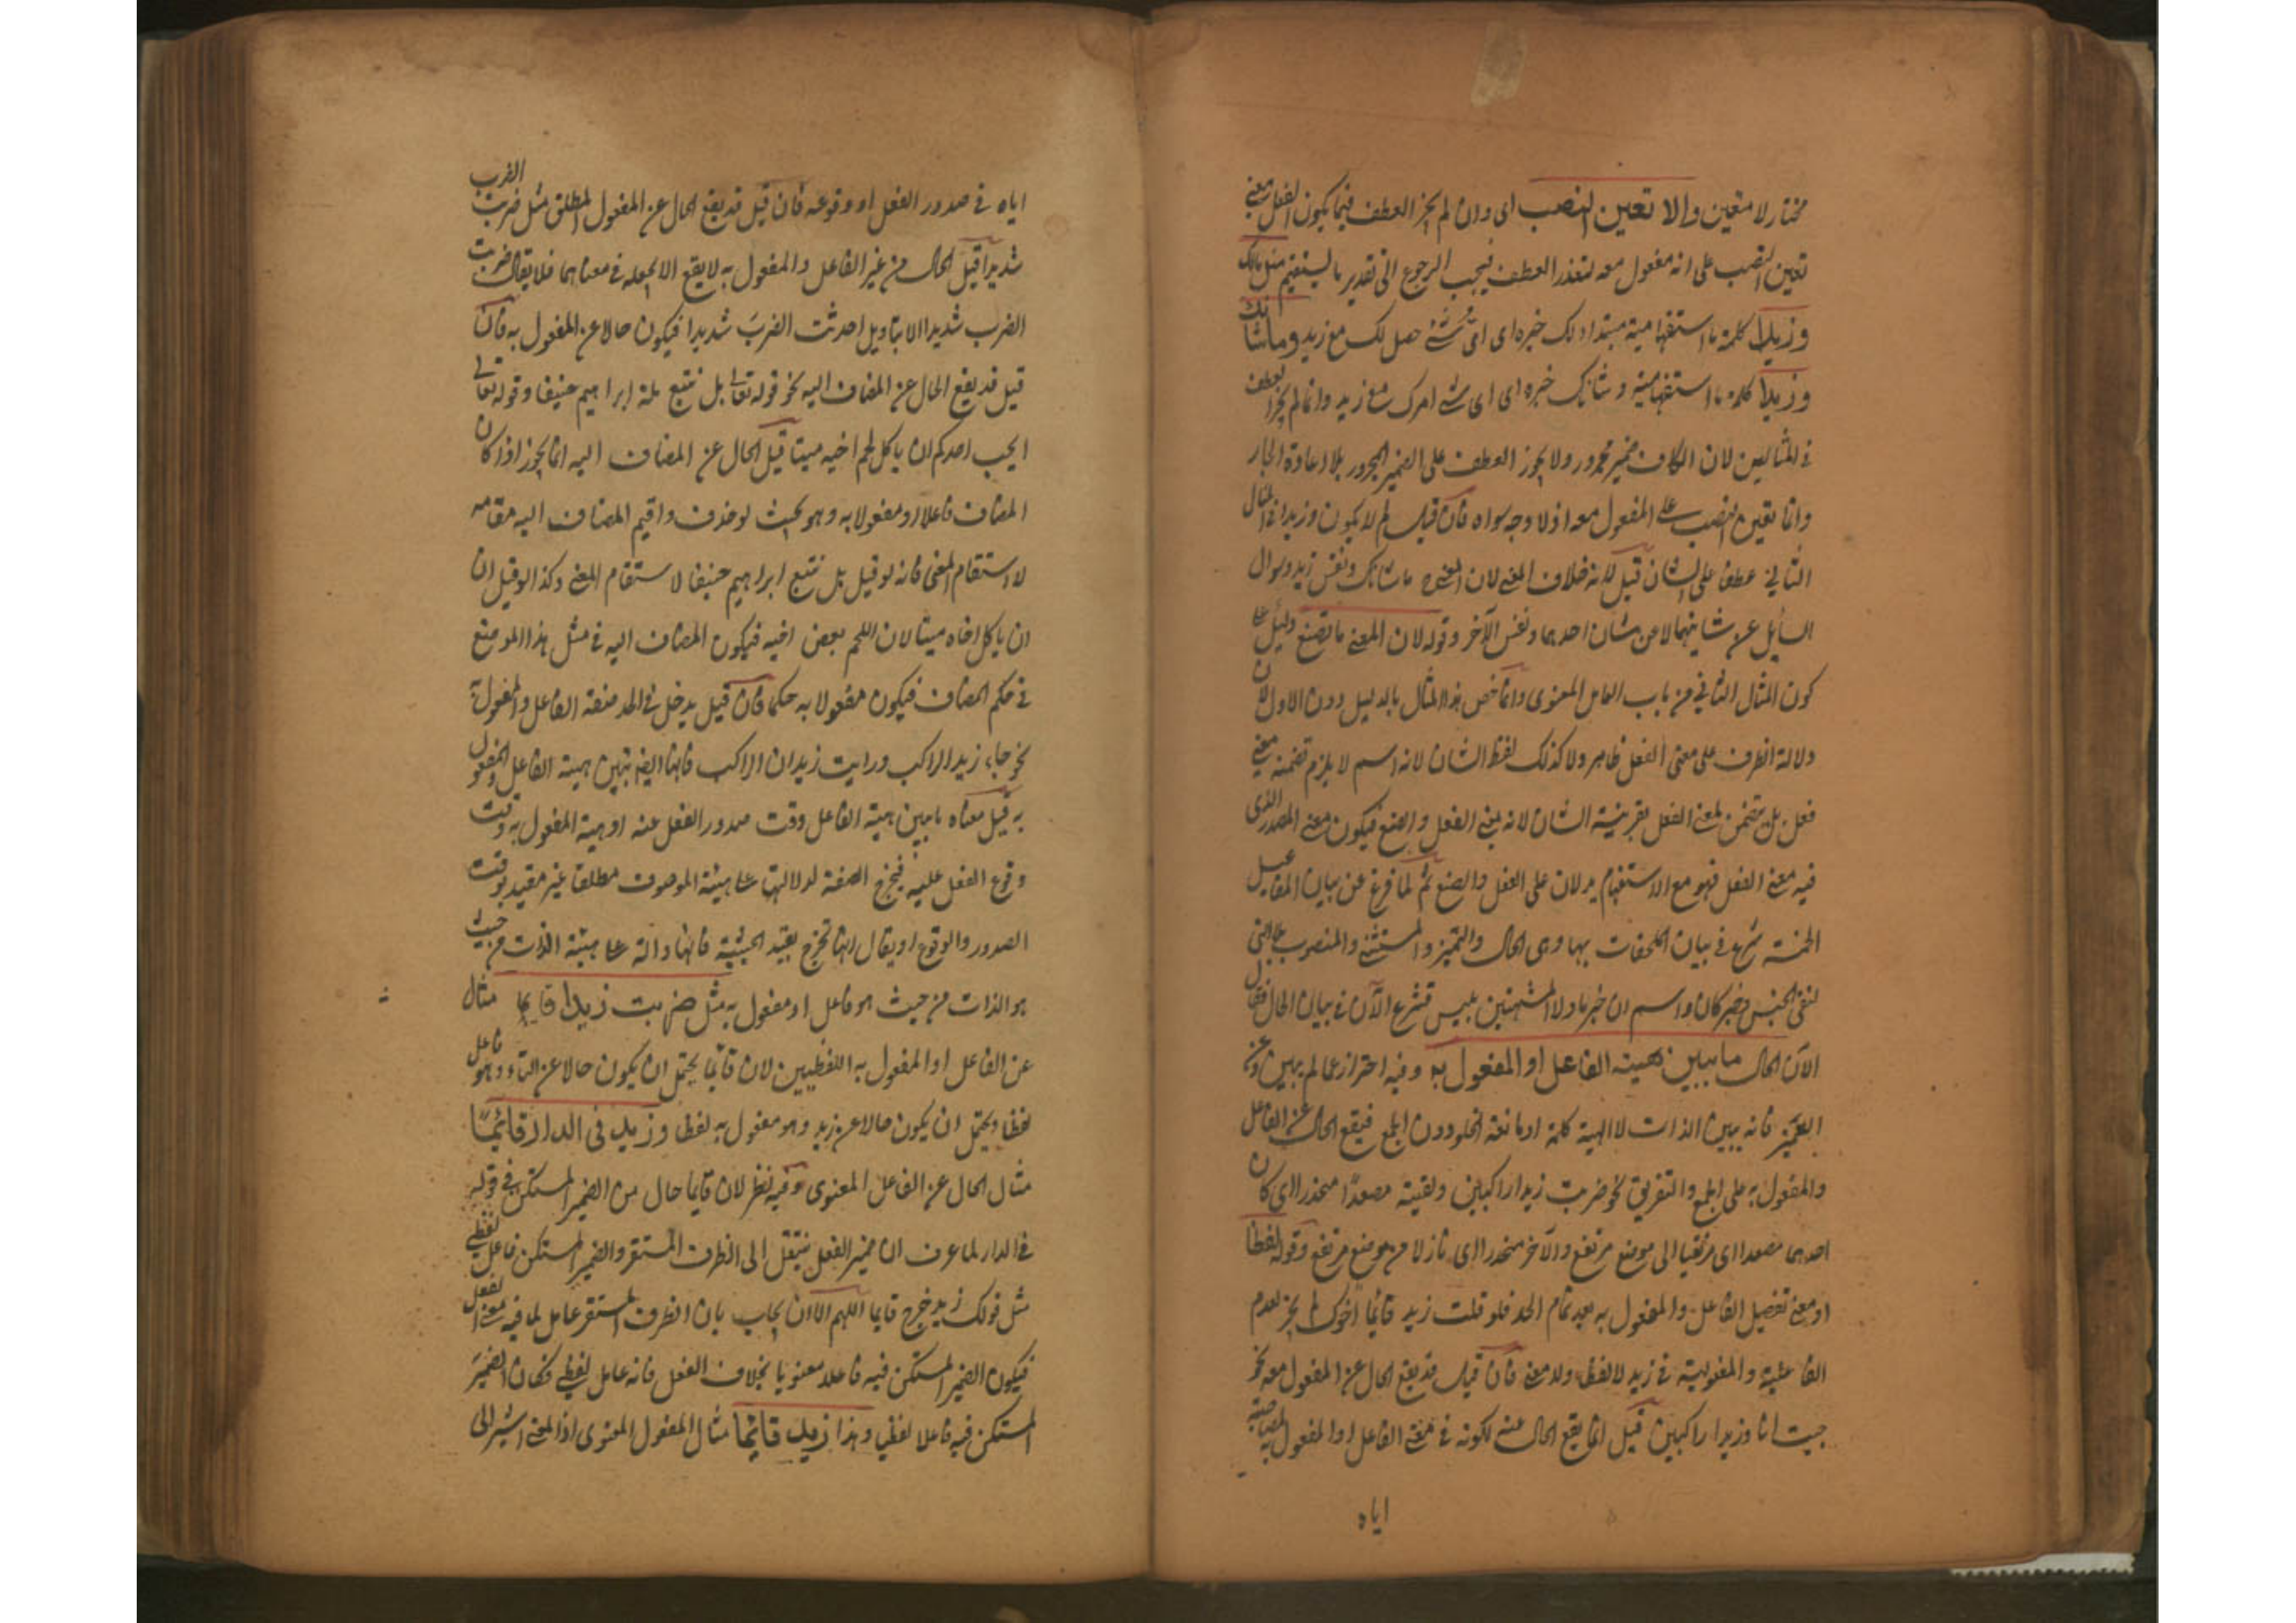 مختار لا متعين والا تعين النصب اى وان لم يجز العطف فيما يكون الفعل معنى
تعين النصب على انه مفعول معه لتعذر العطف فيجب الرجوع الى تقدير ما يستقيم مثل مالك
وزيدا كلمة ما استفهامية مبتدا ولك خبره اى اىّ شئ حصل لك مع زيد وما شانك
وزيدا كلمة ما استفهامية وشانك خبره اى اى شئ امرك مع زيد وانما لم يجز العطف
فى المثالين لان الكاف ضمير مجرور ولا يجوز العطف على الضمير المجرور بلا اعادة الجار
وانما تعين النصب على المفعول معه اذ لا وجه سواه فان قيل لم لا يكون وزيدا فى المثال
الثانى عطفا على الشان قيل لانه خلاف المعنى لان المعنى ح ما شانك ونفس زيد وسوال
السايل عن شانهما لا من شان احدهما ونفس الآخر وقوله لان المعنى ما تصنع دليل على
كون المثال الثانى من باب العامل المعنوى وانما خص هذا المثال بالدليل دون الاول لان
دلالة الظرف على معنى الفعل ظاهر ولا كذلك لفظ الشان لانه اسم لا يلزم تضمنه معنى
فعل بل يتضمن لمعنى الفعل بقرينة الشان لانه بمعنى الفعل والصنع فيكون معنى المصدر الذى
فيه معنى الفعل فهو مع الاستفهام يدلان على الفعل والصنع ثم لما فرغ عن بيان المفاعيل
الخمسة شرع فى بيان الملحقات بها وهى الحال والتميز والمستثنى والمنصوب بلا التى
لنفى الجنس وخبر كان واسم ان وخبر ما ولا المشبهتين بليس فشرع الآن فى بيان الحال فقال
الآن الحال ما يبين هيئة الفاعل او المفعول به وفيه احتراز عما لم يبين وعن
التميز فانه يبين الذات لا الهيئة كلمة او مانعة الخلو دون الجمع فيقع الحال عن الفاعل
والمفعول به على الجمع والتفريق نحو ضربت زيدا راكبين ولقيته مصعدًا منحدرا اى كان
احدهما مصعدا اى مرتقيا الى موضع مرتفع والآخر منحدرا اى نازلا من موضع مرتفع وقوله لفظا
او معنى تفصيل الفاعل والمفعول به بعد تمام الحد فلو قلت زيد قائما اخوك لم يجز لعدم
الفاعلية والمفعولية فى زيد لا لفظا ولا معنى فان قيل قد يقع الحال عن المفعول معه نحو
جيت انا وزيدا راكبين قيل انما يقع الحال عنه لكونه فى معنى الفاعل او المفعول به لمصاحبته
اياه
اياه فى صدور الفعل او وقوعه فان قيل قد يقع الحال عن المفعول المطلق مثل ضربت الضرب
شديدا قيل الحال من غير الفاعل والمفعول به لا يقع الا بجعله فى معناهما فلا يقال ضربت
الضرب شديدا الا بتاويل احدثت الضربَ شديدا فيكون حالا عن المفعول به فان
قيل قد يقع الحال عن المضاف اليه نحو قوله تعالى بل نتبع ملة ابراهيم حنيفا وقوله تعالى
ايحب احدكم ان ياكل لحم اخيه ميتا قيل الحال عن المضاف اليه انما يجوز اذا كان
المضاف فاعلا او مفعولا به وهو بحيث لو حذف واقيم المضاف اليه مقامه
لاستقام المعنى فانه لو قيل بل نتبع ابراهيم حنيفا لاستقام المعنى وكذا لو قيل ان
ان ياكل اخاه ميتا لان اللحم بعض اخيه فيكون المضاف اليه فى مثل هذا الموضع
فى حكم المضاف فيكون مفعولا به حكما فان قيل يدخل فى الحد صفة الفاعل والمفعول به
نحو جاء زيد الراكب ورايت زيدان الراكب فانها ايضا تبين هيئة الفاعل والمفعول
به قيل معناه ما يبين هيئة الفاعل وقت صدور الفعل عنه او هيئة المفعول به وقت
وقوع الفعل عليه فيخرج الصفة لدلالتها على هيئة الموصوف مطلقا غير مقيد بوقت
الصدور والوقوع او يقال انها تخرج بقيد الحيثية فانها دالة على هيئة الذات من حيث
هو الذات من حيث هو فاعل او مفعول به مثل ضربت زيدا قايما مثال
عن الفاعل او المفعول به اللفظيين لان قائما يحتمل ان يكون حالا عن التاء وهو فاعل
لفظا ويحتمل ان يكون حالا عن زيد وهو مفعول به لفظا وزيد فى الدار قائمًا
مثال الحال عن الفاعل المعنوى وفيه نظر لان قايما حال من الضمير المستكن فى قوله
فى الدار لما عرف ان ضمير الفعل ينتقل الى الظرف المستقر والضمير المستكن فاعل لفظى
مثل قولك زيد خرج قايما اللهم الا ان يجاب بان الظرف المستقر عامل لما فيه معنى الفعل
فيكون الضمير المستكن فيه فاعلا معنويا بخلاف الفعل فانه عامل لفظى فكان الضميرَ
المستكن فيه فاعلا لفظيا وهذا زيد قائما مثال المفعول المعنوى اذ المعنى اشير الى